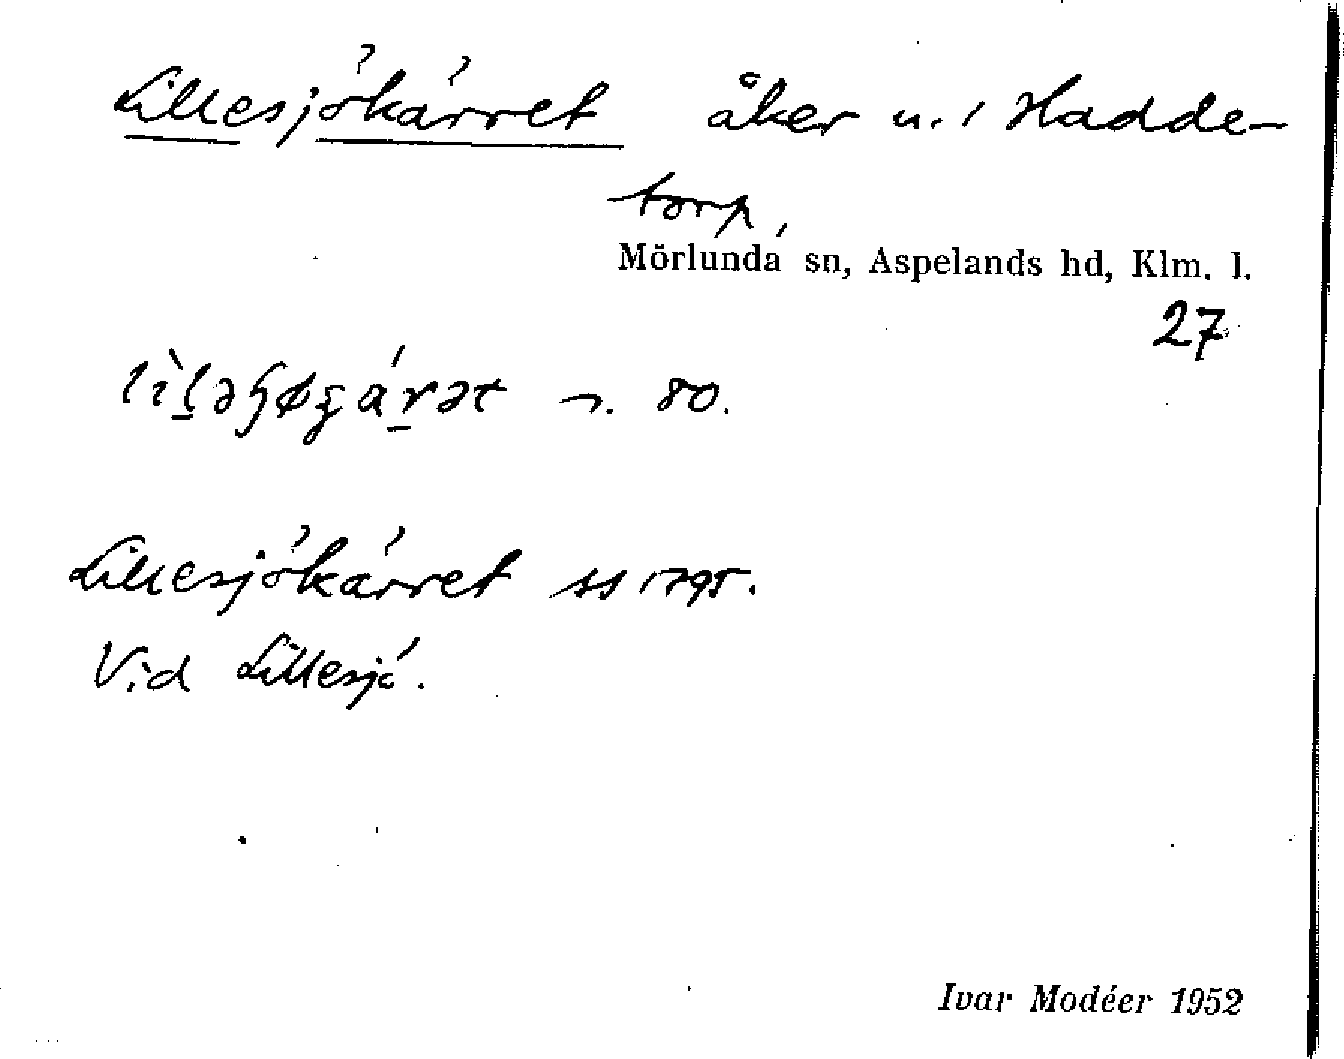 Lillesjökärret åker u. / Hadde-
torp,
Mörlunda sn, Aspelands hd, Klm. l.
27
80.
Lillesjökärret ss 1795.
Vid Lillesjö.
Ivar Modéer 1952